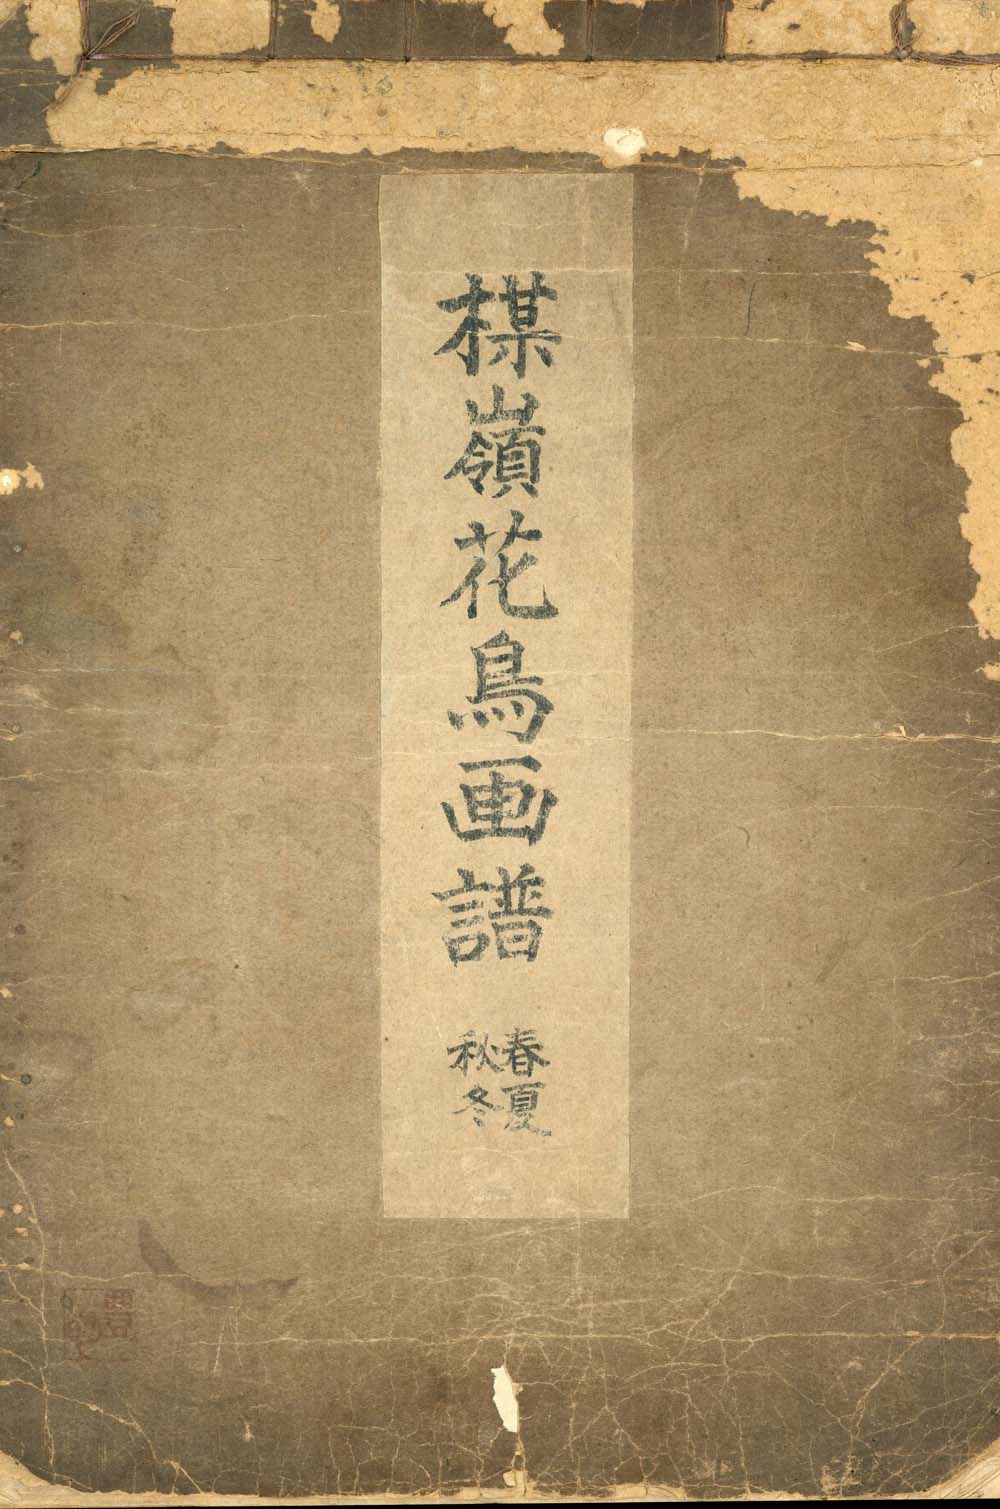 楳嶺花鳥画譜
春夏
秋冬